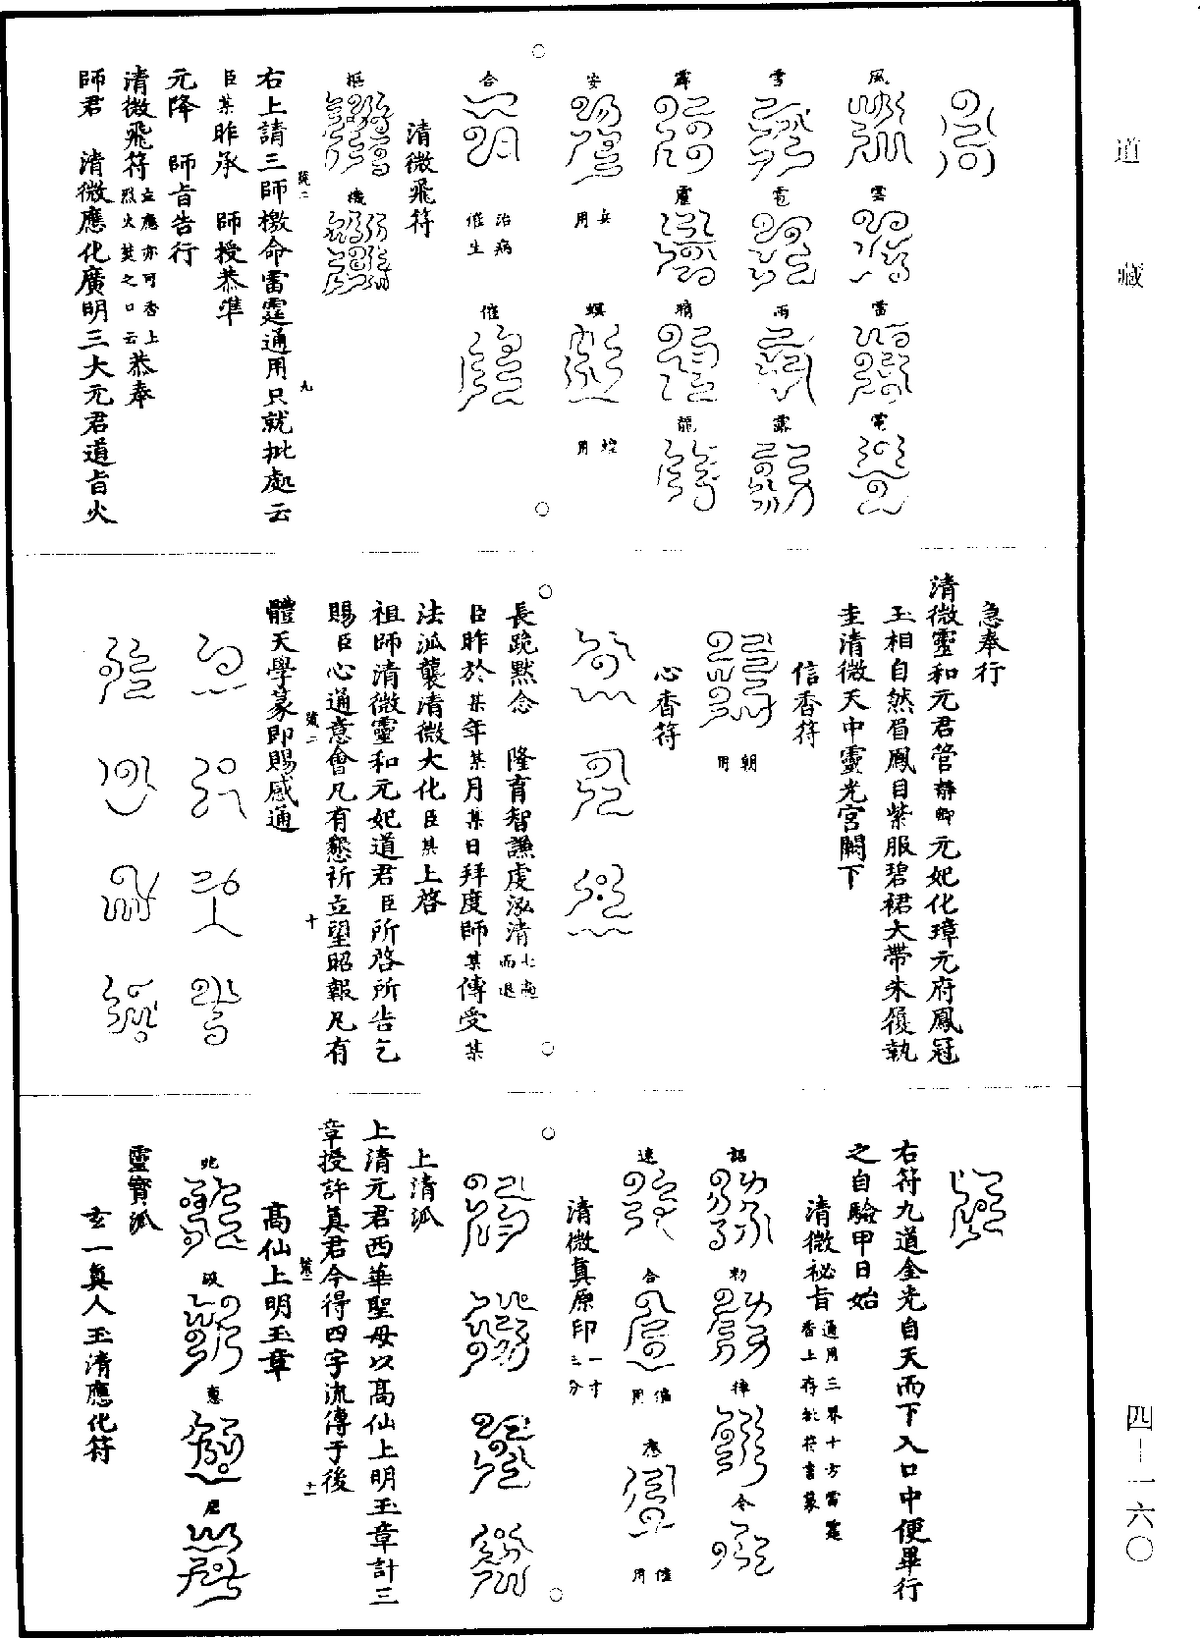 道藏
風
雲
雷
電
雪
雹
雨
露
霹
靂
晴
龍
安
兵用
蝗用
合
治病催生
催
清微飛符
樞
機
右上請三師檄命雷霆通用只就批處云
臣某昨承　師授恭準
元降　師旨告行
清微飛符立應亦可香上烈火焚之口云恭奉
師君　清微應化廣明三大元君道旨火
急奉行
清微靈和元君管靜卿元妃化瑋元府鳳冠
玉相自然眉鳳目紫服碧裙大帶朱履執
圭清微天中靈光宮闕下
信香符
朝用
心香符
長跪黙念　隆育智謙虔泓清七遍而退
臣昨於某年某月某日拜度師某傳受某
法派襲清微大化臣某上啓
祖師清微靈和元妃道君臣所啓所告乞
賜臣心通意會凡有懇祈立望昭報凡有
體天學篆即賜感通
右符九道金光自天而下入口中便畢行
之自驗甲日始
清微祕旨通用三界十方雷霆香上存批符書篆
詔
勑
捧
令
速
合
應
清微真原印一寸三分
上清派
上清元君西華聖母以高仙上明玉章計三
章授許眞君今得四字流傳于後
高仙上明玉章
靈寶派
玄一眞人玉清應化符
四－一六〇